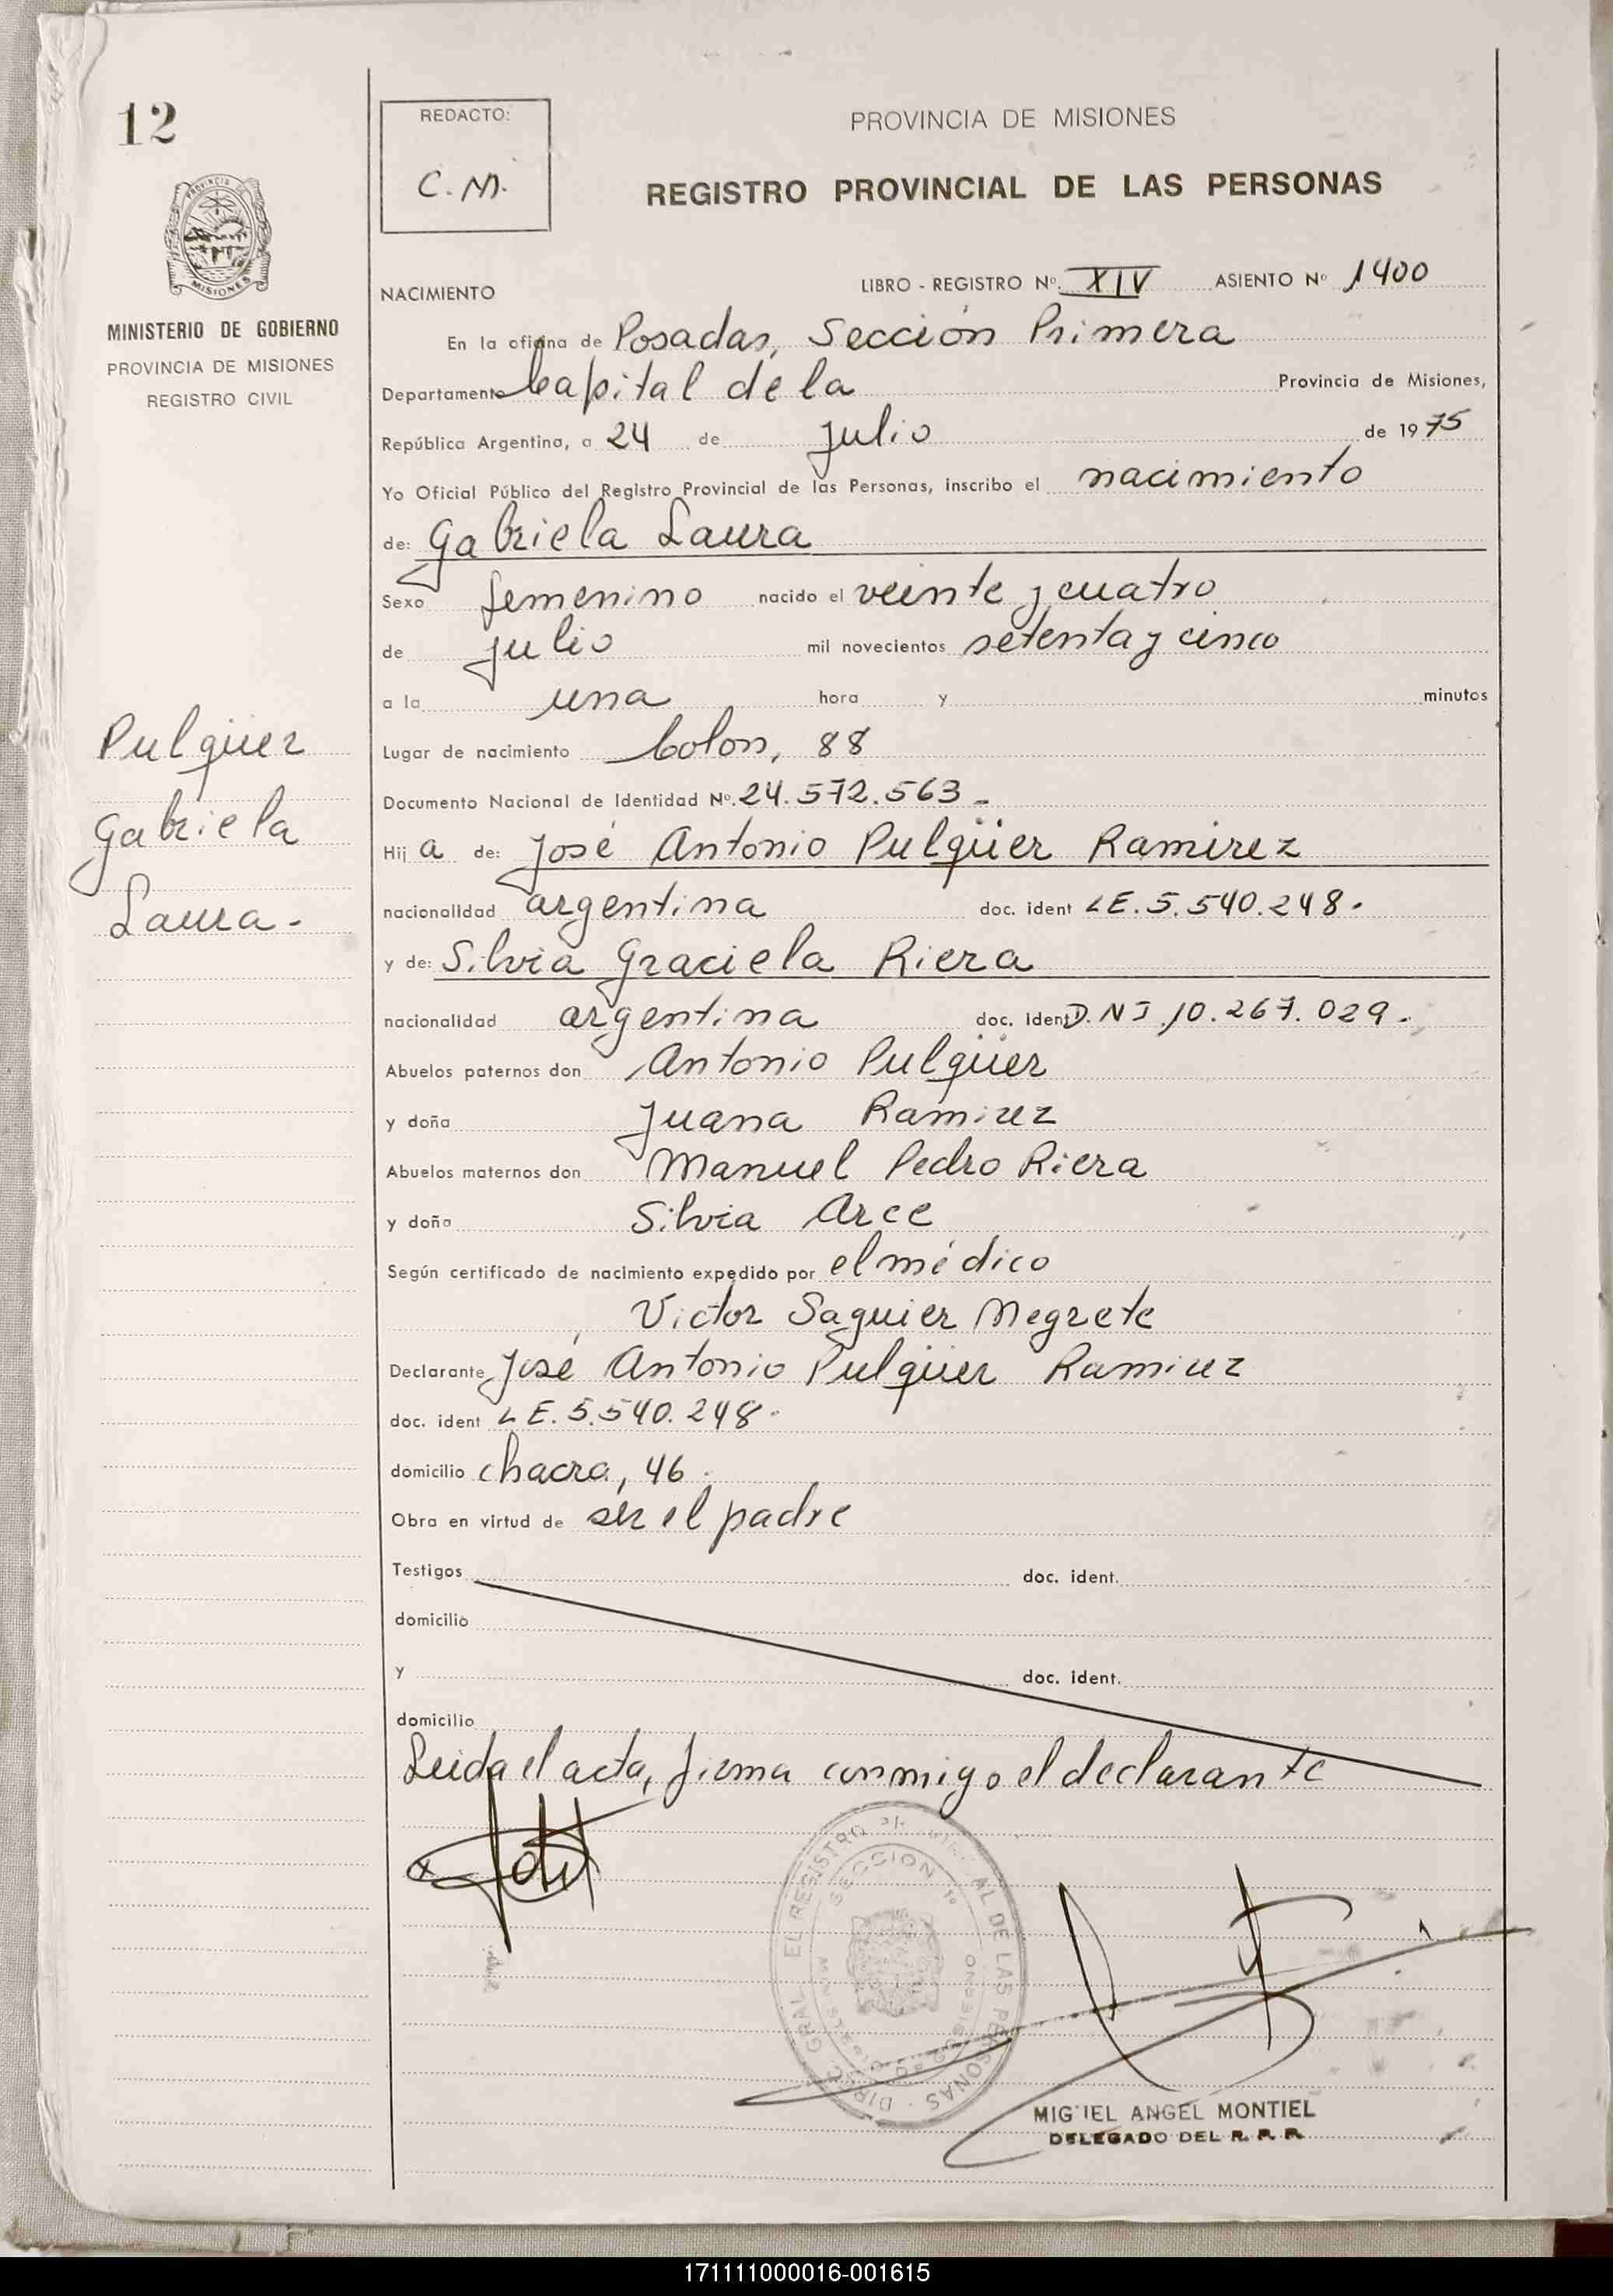 12
REDACTO:
C.M.
PROVINCIA DE MISIONES
REGISTRO PROVINCIAL DE LAS PERSONAS
PROVINCIA DE
MISIONES
MINISTERIO DE GOBIERNO
PROVINCIA DE MISIONES
REGISTRO CIVIL
NACIMIENTO LIBRO - REGISTRO Nº. XIV ASIENTO Nº 1400
En la oficina de Posadas, Sección Primera
Departamento Capital de la Provincia de Misiones,
República Argentina, a 24 de julio de 1975
Yo Oficial Público del Registro Provincial de las Personas, inscribo el nacimiento
de: Gabriela Laura
Sexo femenino nacido el veinte y cuatro
de julio mil novecientos setenta y cinco
a la una hora y minutos
Lugar de nacimiento Colon, 88
Documento Nacional de Identidad Nº. 24.572.563 -
Hij a de: José Antonio Pulgüer Ramirez
nacionalidad argentina doc. ident LE. 5.540.248.
y de: Silvia Graciela Riera
nacionalidad argentina doc. ident D.N I 10.267.029.
Abuelos paternos don Antonio Pulgüer
y doña Juana Ramirez
Abuelos maternos don Manuel Pedro Riera
y doña Silvia Arce
Según certificado de nacimiento expedido por el médico
Victor Saguier Negrete
Declarante José Antonio Pulgüer Ramirez
doc. ident L E. 5.540.248.
domicilio chacra, 46.
Obra en virtud de ser el padre
Testigos doc. ident.
domicilio
y doc. ident.
domicilio
Leida el acta, firma conmigo el declarante
Pulgüer
Gabriela
Laura.-
DIREC. GRAL. EL REGISTRO PROVINCIAL DE LAS PERSONAS
SECCION 1º
MIGUEL ANGEL MONTIEL
DELEGADO DEL R. P. P.
171111000016-001615